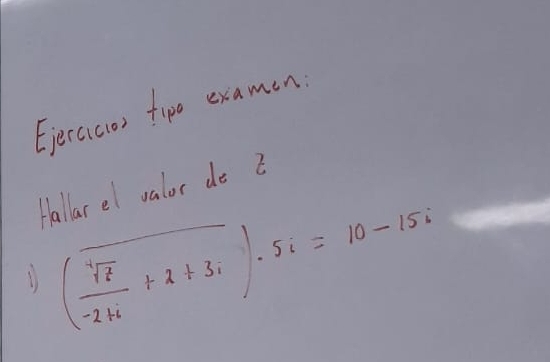 Ejercicios tipo examen:
Hallar el valor de z
1) $\left(\overline{\frac{\sqrt[4]{z}}{-2+i} + 2 + 3i}\right) \cdot 5i = 10 - 15i$